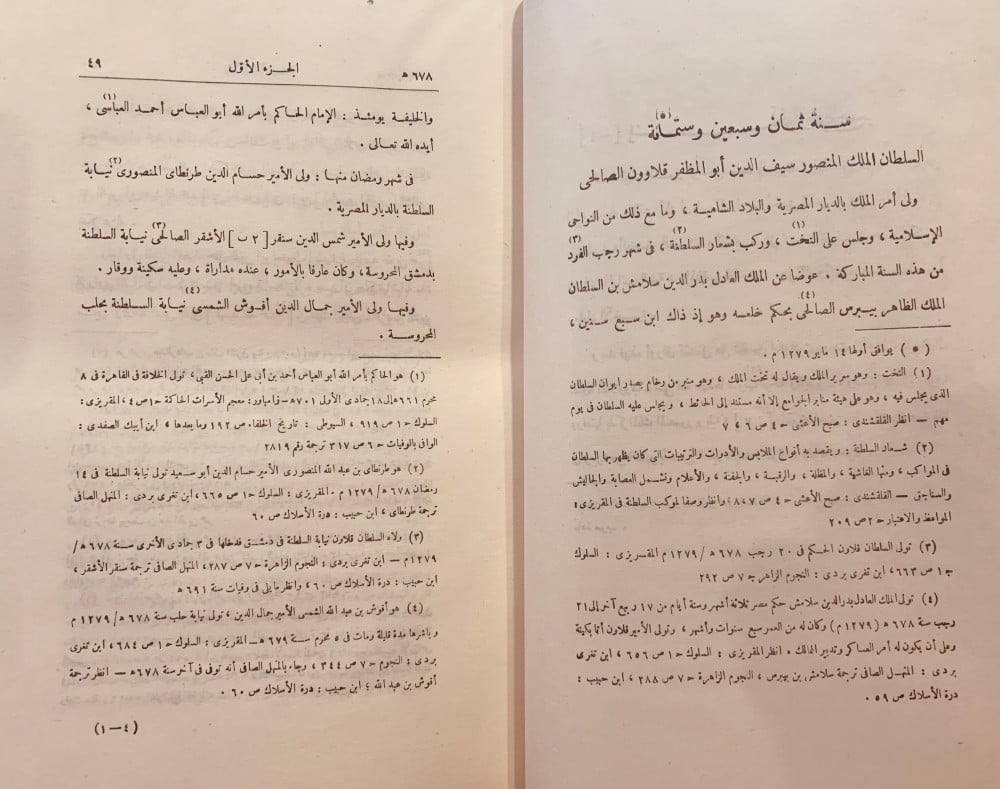 سنة ثمان وسبعين وستمائة (*)
السلطان الملك المنصور سيف الدين أبو المظفر قلاوون الصالحى
ولى أمر الملك بالديار المصرية والبلاد الشامية ، وما مع ذلك من النواحى
الإسلامية ، وجلس على التخت (١) ، وركب بشعار السلطنة (٢) ، فى شهر رجب الفرد (٣)
من هذه السنة المباركة . عوضا عن الملك العادل بدر الدين سلامش بن السلطان
الملك الظاهر بيبرس الصالحى (٤) بحكم خلعه وهو إذ ذاك ابن سبع سنين ،
( * ) يوافق أولها ١٤ مايو ١٢٧٩ م .
(١) التخت : وهو سرير الملك ويقال له تخت الملك ، وهو منبر من رخام بصدر ايوان السلطان
الذى يجلس فيه ، وهو على هيئة منابر الجوامع إلا أنه مستند إلى الحائط ، ويجلس عليه السلطان فى يوم
مهم — انظر القلقشندى : صبح الأعشى ج ٤ ص ٦ ، ٧
(٢) شعار السلطنة : ويقصد به أنواع الملابس والأدوات والترتيبات التى كان يظهر بها السلطان
فى المواكب ، ومنها الغاشية ، والمظلة ، والرقبة ، والجفتة ، والأعلام وتشمل العصابة والجاليش
والسناجق — القلقشندى : صبح الأعشى ج ٤ ص ٧ ، ٨ وانظر وصفا لموكب السلطنة فى المقريزى :
المواعظ والاعتبار ج ٢ ص ٢٠٩
(٣) تولى السلطان قلاون الحكم فى ٢٠ رجب ٦٧٨ ه / ١٢٧٩ م المقريزى : السلوك
ج ١ ص ٦٦٣ ، ابن تغرى بردى : النجوم الزاهر ج ٧ ص ٢٩٢
(٤) تولى الملك العادل بدر الدين سلامش حكم مصر ثلاثة أشهر وستة أيام من ١٧ ربيع آخر إلى ٢١
رجب سنة ٦٧٨ ه ( ١٢٧٩ م ) وكان له من العمر سبع سنوات وأشهر ، وتولى الأمير قلاون أتابكيته
وعلى أن يكون له أمر العساكر وتدبير الممالك . انظر المقريزى : السلوك ج ١ ص ٦٥٦ ، ابن تغرى
بردى : المنهل الصافى ترجمة سلامش بن بيبرس ، النجوم الزاهرة ج ٧ ص ٢٨٨ ، ابن حبيب :
درة الأسلاك ص ٥٩ .
٦٧٨ ه الجزء الأول ٤٩
والخليفة يومئذ : الإمام الحاكم بأمر الله أبو العباس أحمد العباسى (١) ،
أيده الله تعالى .
فى شهر رمضان منها : ولى الأمير حسام الدين طرنطاى المنصورى (٢) نيابة
السلطنة بالديار المصرية .
وفيها ولى الأمير شمس الدين سنقر [ ٢ ب ] الأشقر الصالحى (٣) نيابة السلطنة
بدمشق المحروسة ، وكان عارفا بالأمور ، عنده مداراة ، وعليه سكينة ووقار .
وفيها ولى الأمير جمال الدين أقوش الشمسى (٤) نيابة السلطنة بحلب
المحروسة .
(١) هو الحاكم بأمر الله أبو العباس أحمد بن أبى على الحسن القبى ، تولى الخلافة فى القاهرة فى ٨
محرم ٦٦١ ه إلى ١٨ جمادى الأولى ٧٠١ ه — زامباور : معجم الأسرات الحاكمة ج ١ ص ٤ ، المقريزى :
السلوك ج ١ ص ٩١٩ ، السيوطى : تاريخ الخلفاء ص ١٩٢ وما بعدها ، ابن أيبك الصفدى :
الوافى بالوفيات ج ٦ ص ٣١٧ ترجمة رقم ٢٨١٩
(٢) هو طرنطاى بن عبد الله المنصورى الأمير حسام الدين أبو سعيد تولى نيابة السلطنة فى ١٤
رمضان ٦٧٨ ه / ١٢٧٩ م . المقريزى : السلوك ج ١ ص ٦٦٥ ، ابن تغرى بردى : المنهل الصافى
ترجمة طرنطاى ، ابن حبيب : درة الأسلاك ص ٦٠
(٣) ولاه السلطان قلاون نيابة السلطنة فى دمشق فدخلها فى ٣ جمادى الأخرى سنة ٦٧٨ ه /
١٢٧٩ م — ابن تغرى بردى : النجوم الزاهرة ج ٧ ص ٢٨٧ ، المنهل الصافى ترجمة سنقر الأشقر ،
ابن حبيب : درة الأسلاك ص ٦٠ ، وانظر ما يلى فى وفيات سنة ٦٩١ ه
(٤) هو أقوش بن عبد الله الشمسى الأمير جمال الدين ، تولى نيابة حلب سنة ٦٧٨ ه / ١٢٧٩ م
وباشرها مدة قليلة ومات فى ٥ محرم سنة ٦٧٩ ه — المقريزى : السلوك ج ١ ص ٦٨٤ ، ابن تغرى
بردى : النجوم ج ٧ ص ٣٤٤ ، وجاء بالمنهل الصافى أنه توفى فى آخر سنة ٦٧٨ ه — انظر ترجمة
أقوش بن عبد الله ؛ ابن حبيب : درة الأسلاك ص ٦٠ .
(٤ — ١)